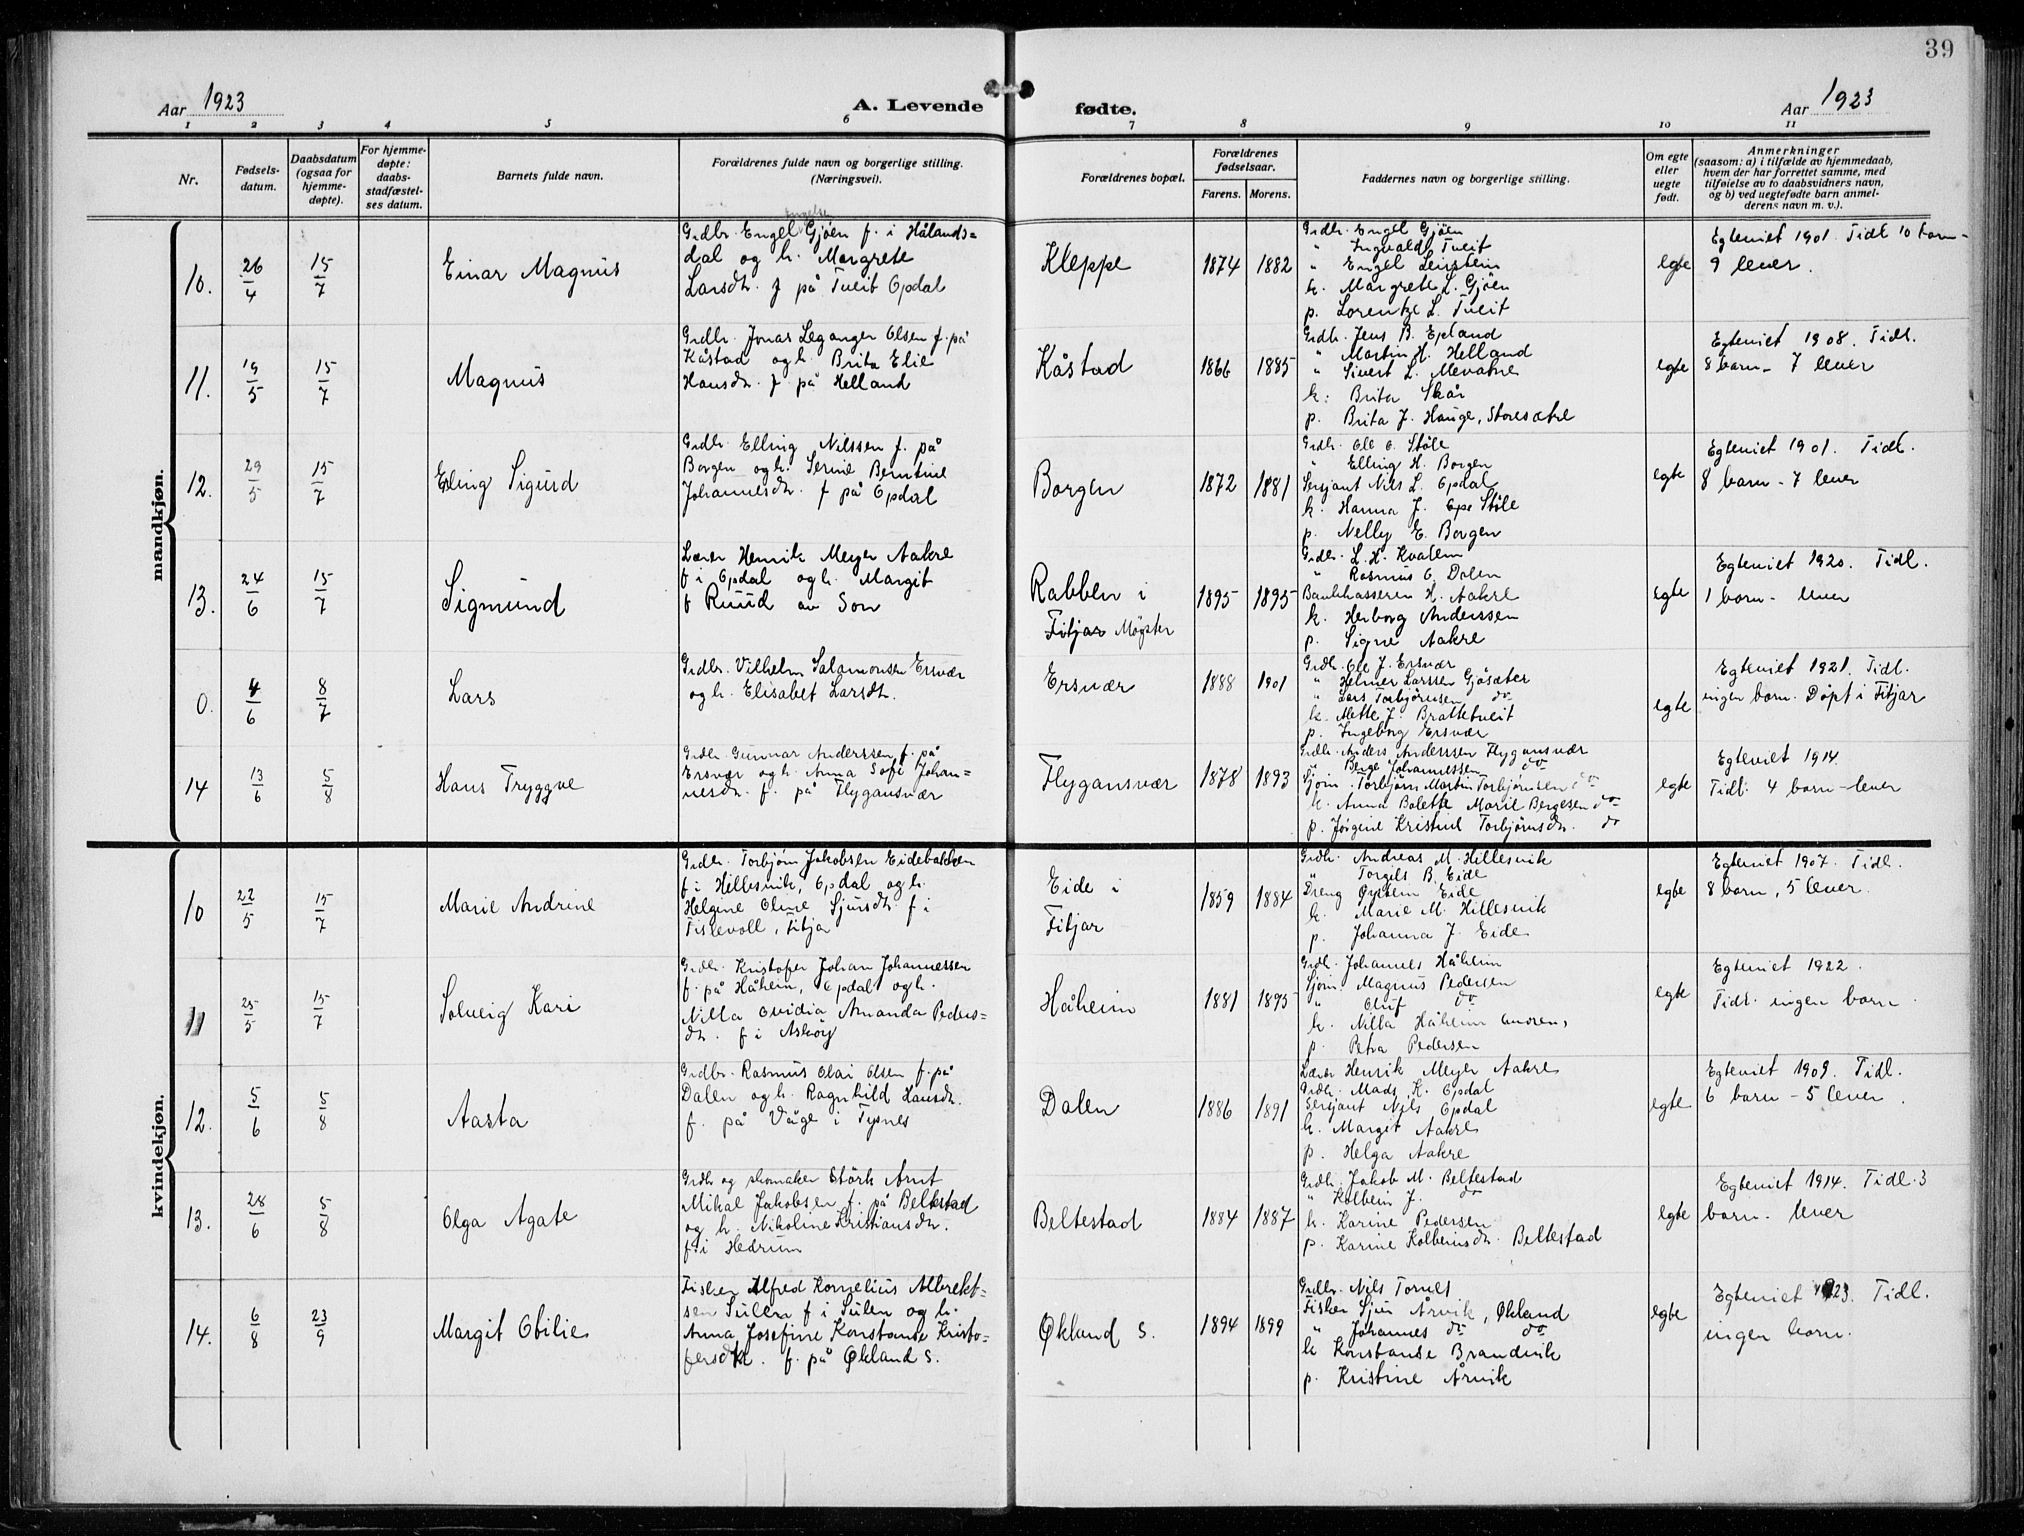 39
Aar 1923
A. Levende
fødte.
Aar 1923
1 2 3 4 5 6 7 8 9 10 11
Nr.
Fødsels-
datum.
Daabsdatum
(ogsaa for
hjemme-
døpte).
For hjemme-
døpte:
daabs-
stadfæstel-
ses datum.
Barnets fulde navn.
Forældrenes fulde navn og borgerlige stilling.
(Næringsvei).
Forældrenes bopæl.
Forældrenes
fødselsaar.
Farens. Morens.
Faddernes navn og borgerlige stilling.
Om egte
eller
uegte
født.
Anmerkninger
(saasom: a) i tilfælde av hjemmedaab,
hvem der har forrettet samme, med
tilføielse av to daabsvidners navn,
og b) ved uegtefødte barn anmel-
derens navn m. v.).
mandkjøn.
10. 26/4 15/7 Einar Magnus
Grdbr. Engel Gjöen f. i Hålands=
dal og h. Margrete
Larsdtr. f på Tveit Opdal
Kleppe 1874 1882
Grdbr. Engel Gjöen
" Ingvald Tveit
" Engel Leirstein
k. Margrete L. Gjöen
p. Lorentze L. Tveit
egte
Egteviet 1901. Tidl 10 barn-
9 lever.
11. 19/5 15/7 Magnus
Grdbr. Jonas Leganger Olsen f. på
Kåstad og h. Brita Elie
Hansdtr. f på Helland
Kåstad 1866 1885
Grdbr. Jens B. Epland
" Martin H. Helland
" Sivert L. Mevatne
k: Brita Skår
p. Brita J. Hauge, Storesætre
egte
Egteviet 1908. Tidl.
8 barn - 7 lever
12. 29/5 15/7 Erling Sigurd
Grdbr. Elling Nilssen f. på
Borgen og h. Serine Berntine
Johannesdtr. f på Opdal
Borgen 1872 1881
Grdbr. Ole O. Stöle
" Elling H. Borgen
Sersjant Nils L. Opdal
k. Hanna J. Ope Stöle
p. Nelly E. Borgen
egte
Egteviet 1901. Tidl.
8 barn - 7 lever
13. 24/6 15/7 Sigmund
Lærer Henrik Meyer Aakre
f i Opdal og h. Margit
f Ruud av Son
Rabben i
Fitjar Møgster
1895 1895
Grdbr. L. H. Kvalem
" Rasmus O. Dalen
Bankkasseren H. Aakre
k. Herborg Anderssen
p. Signe Aakre
egte
Egteviet 1920. Tidl.
1 barn - lever
0. 4/6 8/7 Lars
Grdbr. Vilhelm Salamonsen Ersvær
og h. Elisabet Larsdtr.
Ersvær 1888 1901
Grdbr. Ole J. Ersvær
" Helmer Larssen Gjösæter
" Lars Torbjörnsen do
k. Mette J. Brattetveit
p. Ingeborg Ersvær
egte
Egteviet 1921. Tidl.
ingen barn. Döpt i Fitjar
14 13/6 5/8 Hans Tryggve
Grdbr. Gunnar Anderssen f. på
Ersvær og h. Anna Sofi Johan=
nesdtr. f. på Flygansvær
Flygansvær 1878 1893
Grdbr. Anders Anderssen Flygansvær
" Berge Johannessen do
Sjøm. Torbjörn Martin Torbjörnsen do
k. Anna Bolette Marie Bergesen do
p. Jørgine Kristine Torbjörnsdtr. do
egte
Egteviet 1914.
Tidl. 4 barn - lever
kvindekjøn.
10 22/5 15/7 Marie Andrine
Grdbr. Torbjörn Jakobsen Eidebakken
f i Hillesvik, Opdal og h.
Helgine Oline Sjursdtr. f i
Tislevoll, Fitjar
Eide i
Fitjar
1859 1884
Grdbr. Andreas M. Hillesvik
" Torgils B. Eide
Dreng Øystein Eide
k. Marie M. Hillesvik
p. Johanna J. Eide
egte
Egteviet 1907. Tidl.
8 barn, 5 lever.
11 25/5 15/7 Solveig Kari
Grdbr. Kristofer Johan Johannessen
f. på Håheim, Opdal og h.
Nilla Ovidia Amanda Peders=
dtr. f i Askøy
Håheim 1881 1895
Grdbr. Johannes Håheim
Sjöm. Magnus Pedersen
" Oluf do
k. Nilla Håheim
p. Petra Pedersen
egte
Egteviet 1922.
Tidl. ingen barn
12. 5/6 5/8 Aasta
Grdbr. Rasmus Olai Olsen f. på
Dalen og h. Ragnhild Hansdtr.
f. på Våge i Tysnes
Dalen 1886 1891
Lærer Henrik Meyer Aakre
Grdbr. Mads K. Opdal
Sersjant Nils Opdal
k. Margit Aakre
p. Helga Aakre
egte
Egteviet 1909. Tidl.
6 barn - 5 lever.
13. 28/6 5/8 Olga Agate
Grdbr og skomaker Störk Arnt
Mikal Jakobsen f. på Beltestad
og h. Nikoline Kristiansdtr.
f i Hedrum
Beltestad 1884 1887
Grdbr. Jakob M. Beltestad
" Kolbein J. do
k. Karine Pedersen
p. Karine Kolbeinsdtr. Beltestad
egte
Egteviet 1914. Tidl. 3
barn. lever
14. 6/8 23/9 Margit Obilie
Fisker Alfred Kornelius Albrekt=
sen Sulen f i Sulen og h.
Anna Josefine Konstanse Kristo=
fersdtr. f. på Økland S.
Økland S. 1894 1899
Grdbr. Nils Torvet
Fisker Sjur Årvik, Økland
" Johannes do do
k Konstanse Brandvik
p. Kristine Årvik
egte
Egteviet 1923. Tidl.
ingen barn.